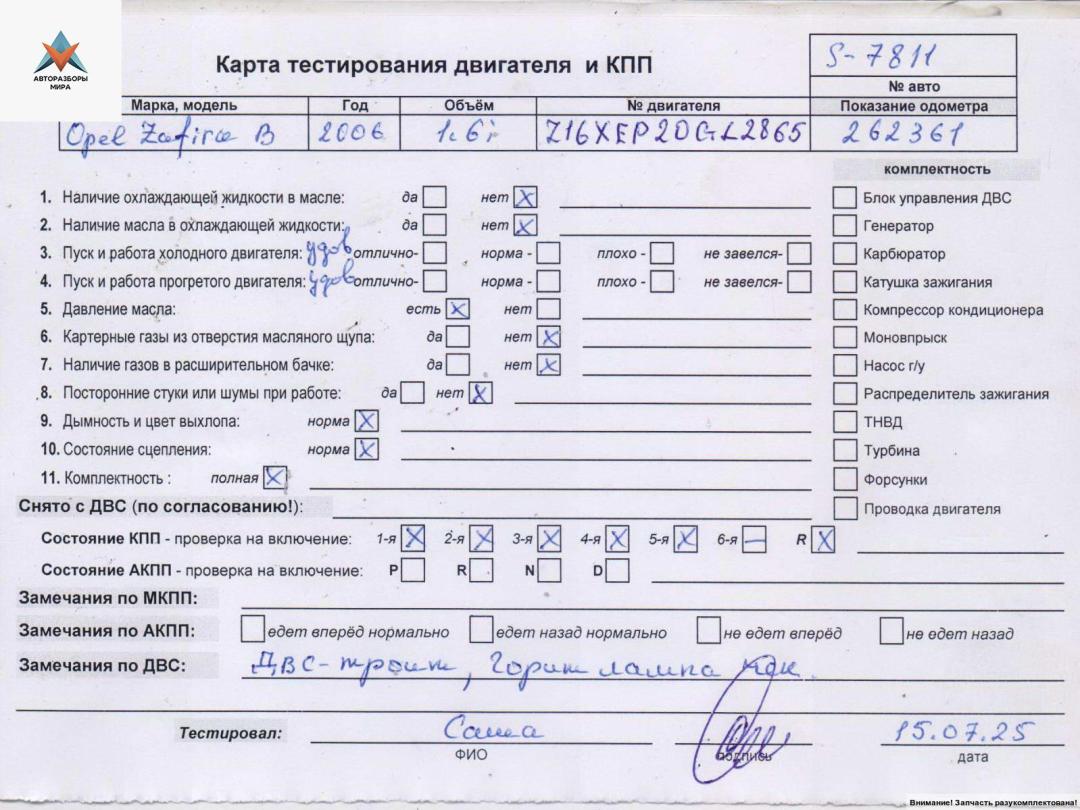 АВТОРАЗБОРЫ
МИРА
Карта тестирования двигателя и КПП
S-7811
№ авто
Марка, модель Год Объём № двигателя Показание одометра
Opel Zafira B 2006 1.6i Z16XEP20GL2865 262361
комплектность
1. Наличие охлаждающей жидкости в масле: да нет X Блок управления ДВС
2. Наличие масла в охлаждающей жидкости: да нет X Генератор
3. Пуск и работа холодного двигателя: удов отлично- норма - плохо - не завелся- Карбюратор
4. Пуск и работа прогретого двигателя: удов отлично- норма - плохо - не завелся- Катушка зажигания
5. Давление масла: есть X нет Компрессор кондиционера
6. Картерные газы из отверстия масляного щупа: да нет X Моновпрыск
7. Наличие газов в расширительном бачке: да нет X Насос г/у
8. Посторонние стуки или шумы при работе: да нет X Распределитель зажигания
9. Дымность и цвет выхлопа: норма X ТНВД
10. Состояние сцепления: норма X Турбина
11. Комплектность : полная X Форсунки
Снято с ДВС (по согласованию!): Проводка двигателя
Состояние КПП - проверка на включение: 1-я X 2-я X 3-я X 4-я X 5-я X 6-я — R X
Состояние АКПП - проверка на включение: P R N D
Замечания по МКПП:
Замечания по АКПП: едет вперёд нормально едет назад нормально не едет вперёд не едет назад
Замечания по ДВС: ДВС-троит, Горит лампа
Тестировал: Саша 15.07.25
ФИО подпись дата
Внимание! Запчасть разукомплектована!